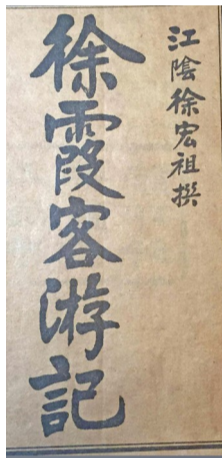 江陰徐宏祖撰
徐霞客游記